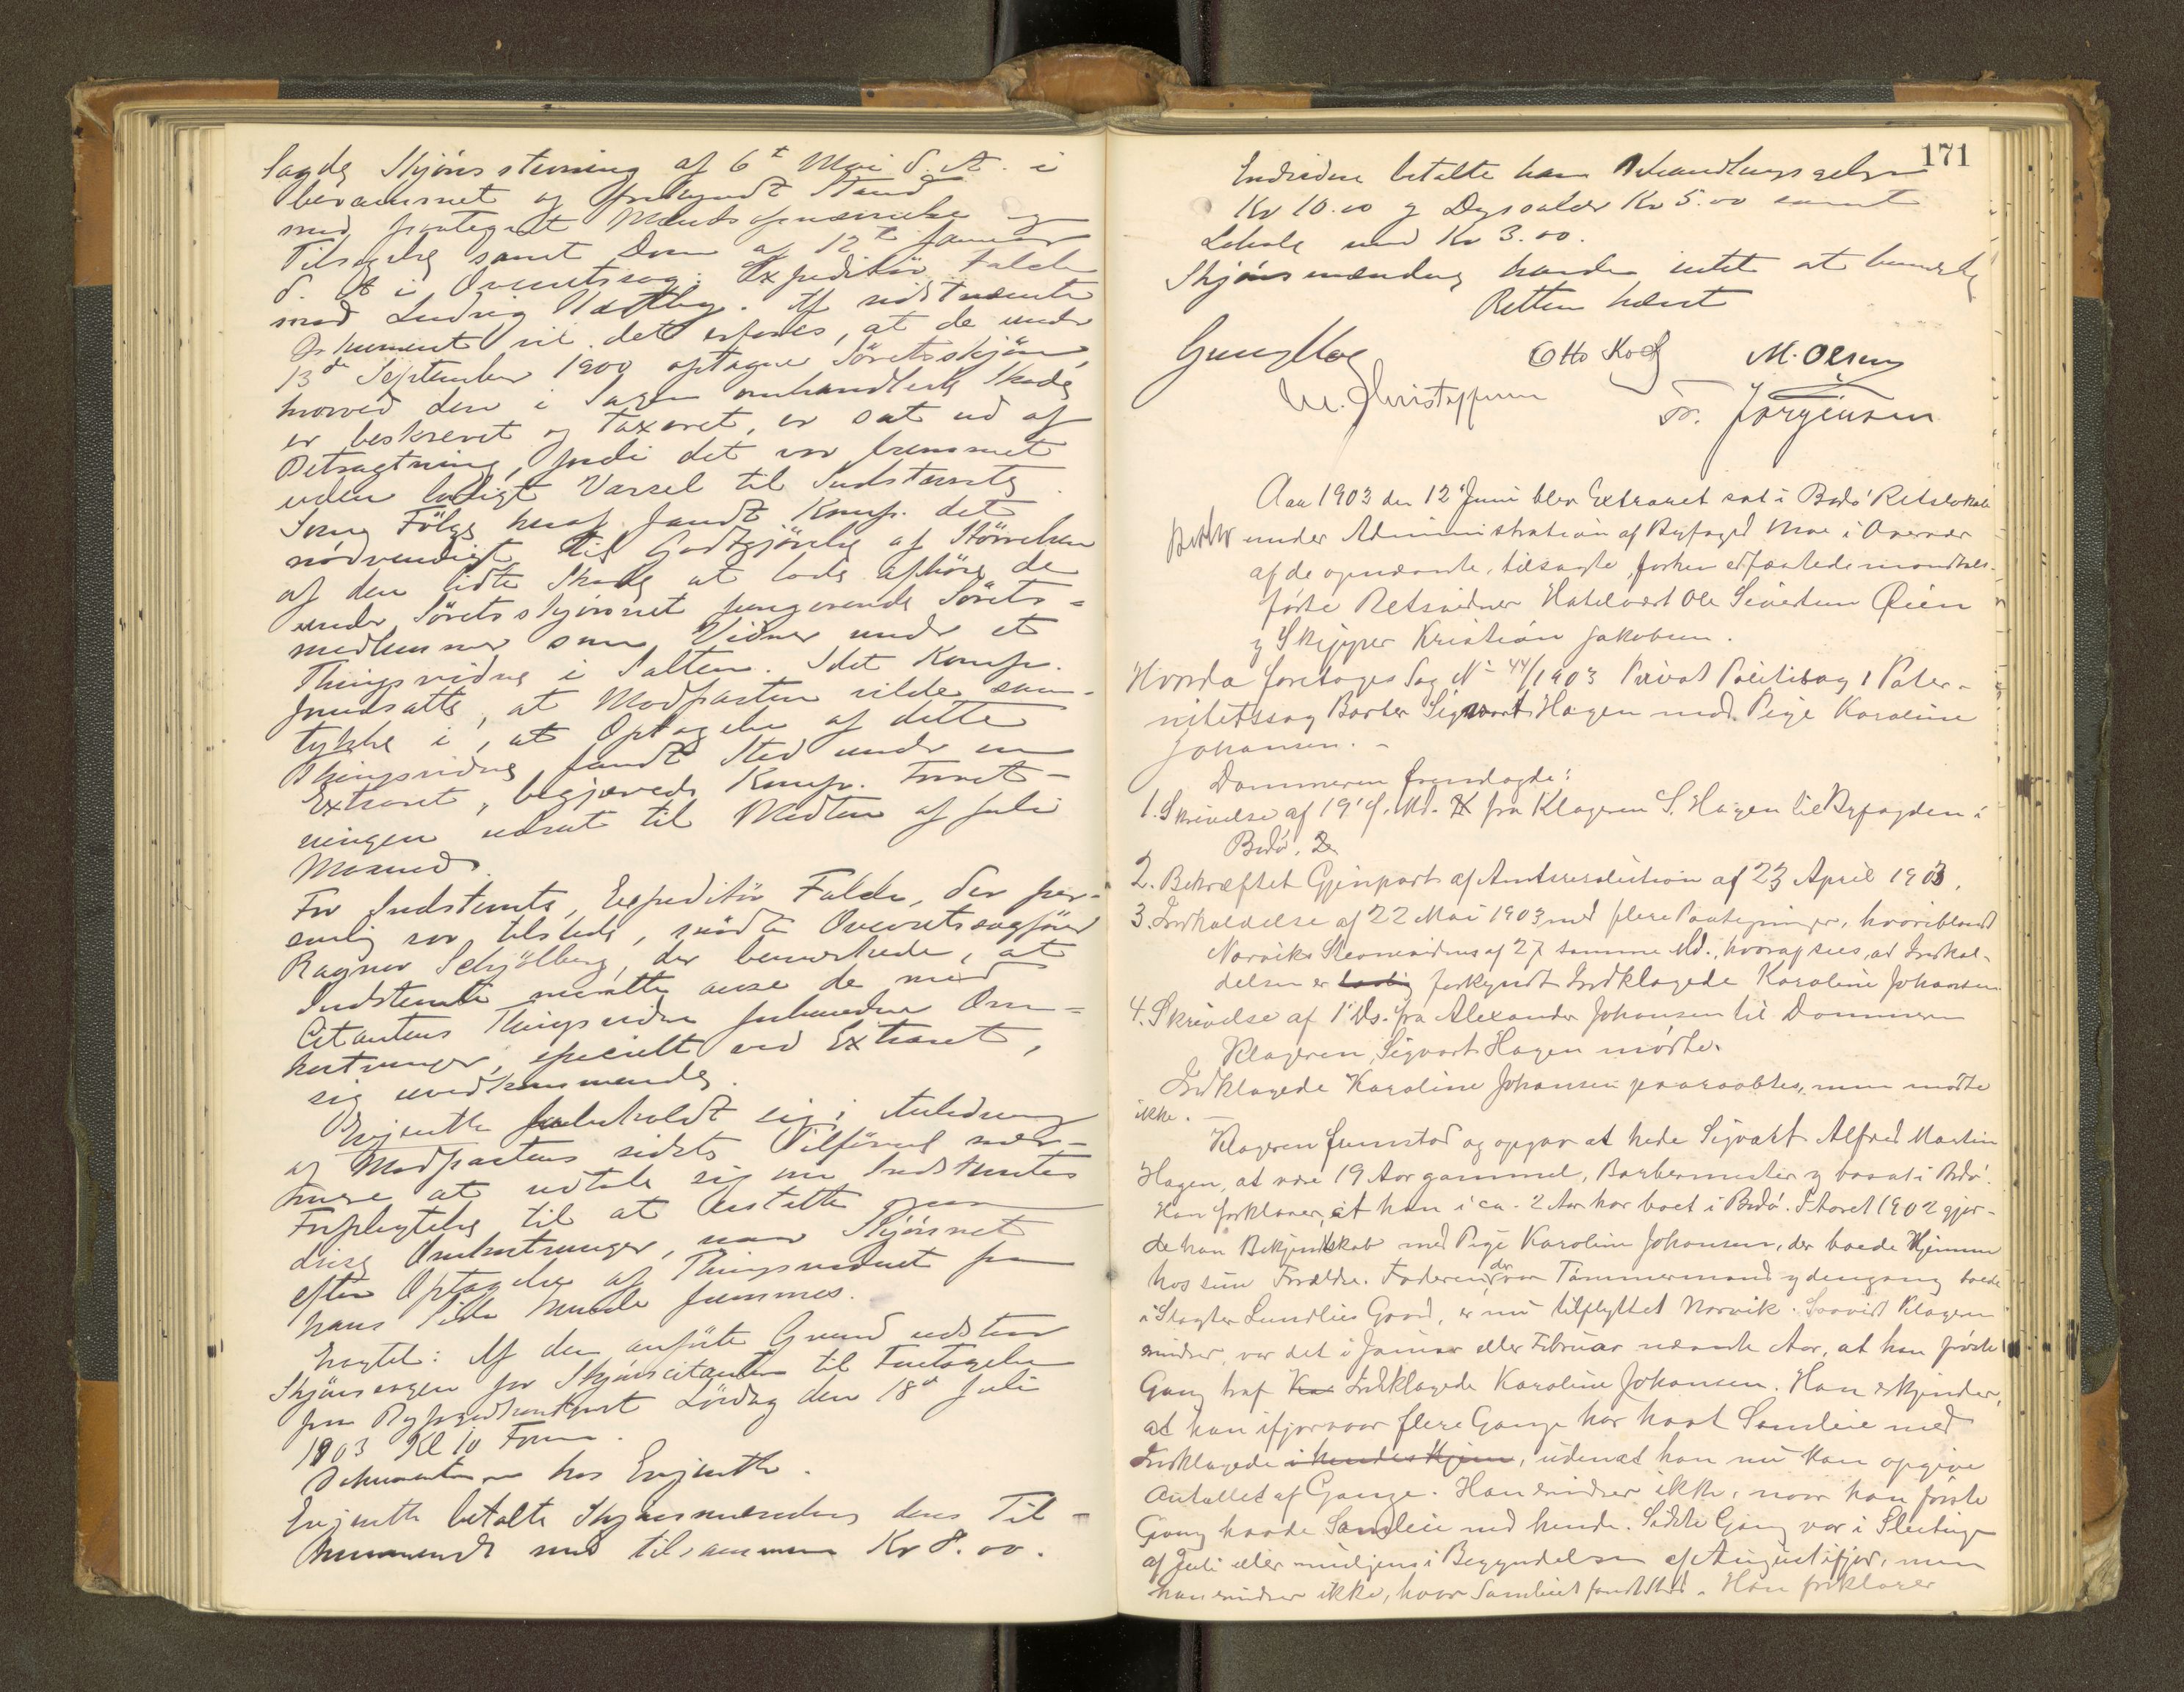 lagde Skjønsstevning af 6te Mai d. A. i
beraammet og forkyndt Stand
med paategnet Mandsopnævnelse og
Tilsigelse samt Dom af 12te Januar
d. A. i Overretssag: Expeditør Falch
mod Ludvig. Af sidstnævnte
Dokument vil det erfares, at de under
13de September 1900 optagne Søretsskjøn,
hvorved den i Sagen omhandlede Skade
er beskrevet og taxeret, er sat ud af
Betragtning, fordi det var fremmet
uden lovligt Varsel til Indstevnte.
Som Følge heraf fandt Komp. det
nødvendigt til Godtgjørelse af Størrelsen
af den lidte Skade at lade afhøre de
under Søretsskjønnet fungerende Sørets-
medlemmer som Vidner under et
Thingsvidne i Salten. Idet Komp.
forudsatte, at Modparten vilde sam-
tykke i, at Optagelse af dette
Thingsvidne fandt Sted under en
Extraret, begjærede Komp. Forret-
ningen udsat til Midten af Juli
Maaned.
For Indstevnte, Expeditør Falch, der per-
sonlig var tilstede, mødte Overretssagfører
Ragnar Schjølberg, der bemærkede, at
Indstevnte maatte anse de med
Citantens Thingsvidne forbundne Om-
kostninger, specielt ved Extraret,
sig uvedkommende.
Engseth forbeholdt sig i Anledning
af Modpartens sidste Tilførsel nær-
mere at udtale sig om Indstevntes
Forpligtelse til at erstatte
disse Omkostninger, naar Skjønnet
efter Optagelse af Thingsvidnet fra
hans Side burde fremmes.
Eragtet: Af den anførte Grund udsættes
Skjønssagen for Skjønscitanten til Foretagelse
paa Byfogedkontoret Lørdag den 18de Juli
1903 Kl 10 Form.
Dokumenterne hos Engseth.
Engseth betalte Skjønsmændene deres Til-
kommende med tilsammen Kr 8.00.
171
Endvidere betalte han Behandlingsgebyr
Kr 10.00 og Dagsdiæt Kr 5.00 samt
Lokale med Kr 3.00.
Skjønsmændene havde intet at bemærke
Retten hævet
Gunn Moe Otto Koch M. Olsen
M. Christophersen Fr. Jørgensen
Aar 1903 den 12' Juni blev Extraret sat i Bodø Retslokale
under Administration af Byfoged Moe i Overvær
af de opnævnte, tilsagte, forhen edfæstede mandtal-
førte Retsvidner Hotelvært Ole Sivertsen Øien
og Skipper Kristian Jakobsen.
Hvorda foretoges Sag No 44/1903 Privat Politisag, Pater-
nitetssag Barber Sigvart Hagen mod Pige Karoline
Johansen. -
Dommeren fremlagde:
1. Skrivelse af 19' f. Md. fra Klageren S. Hagen til Byfogden i
Bodø.
2. Bekræftet Gjenpart af Amtsresolution af 23 April 1903.
3. Indkaldelse af 22 Mai 1903 med flere Paategninger, hvoriblandt
Narviks Stevnevidners af 27 samme Md., hvoraf sees, at Indkal-
delsen er lovlig forkyndt Indklagede Karoline Johansen.
4. Skrivelse af 1' ds. fra Alexander Johansen til Dommeren
Klageren, Sigvart Hagen mødte.
Indklagede Karoline Johansen paaraabtes, men mødte
ikke. -
Klageren fremstod og opgav at hede Sigvart Alfred Martin
Hagen, at være 19 Aar gammel, Barbermester og bosat i Bodø.
Han forklarer, at han i ca. 2 Aar har boet i Bodø. I Aaret 1902 gjor-
de han Bekjendtskab med Pige Karoline Johansen, der boede hjemme
hos sine Forældre. Faderen, der var Tømmermand og dengang boede
i Slagter Lundlies Gaard, er nu tilflyttet Narvik. Saavidt Klageren
mindes, var det i Januar eller Februar nævnte Aar, at han første
Gang traf Kar Indklagede Karoline Johansen. Han erkjender,
at han ifjorvaar flere Gange har havt Samleie med
Indklagede i hendes Hjem, uden at han nu kan opgive
Antallet af Gange. Han mindes ikke, naar han første
Gang havde Samleie med hende. Sidste Gang var i Slutningen
af Juli eller muligens i Begyndelsen af August ifjor, men
han mindes ikke, hvor Samleiet fandt Sted. Han forklarer